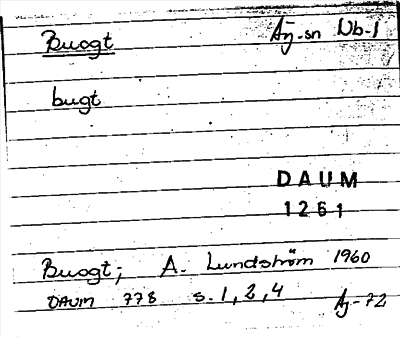 Buogt Åj-sn Nb-1
bugt
DAUM
1261
Buogt; A. Lundström 1960
DAUM 778 s. 1, 2, 4 Aj-72